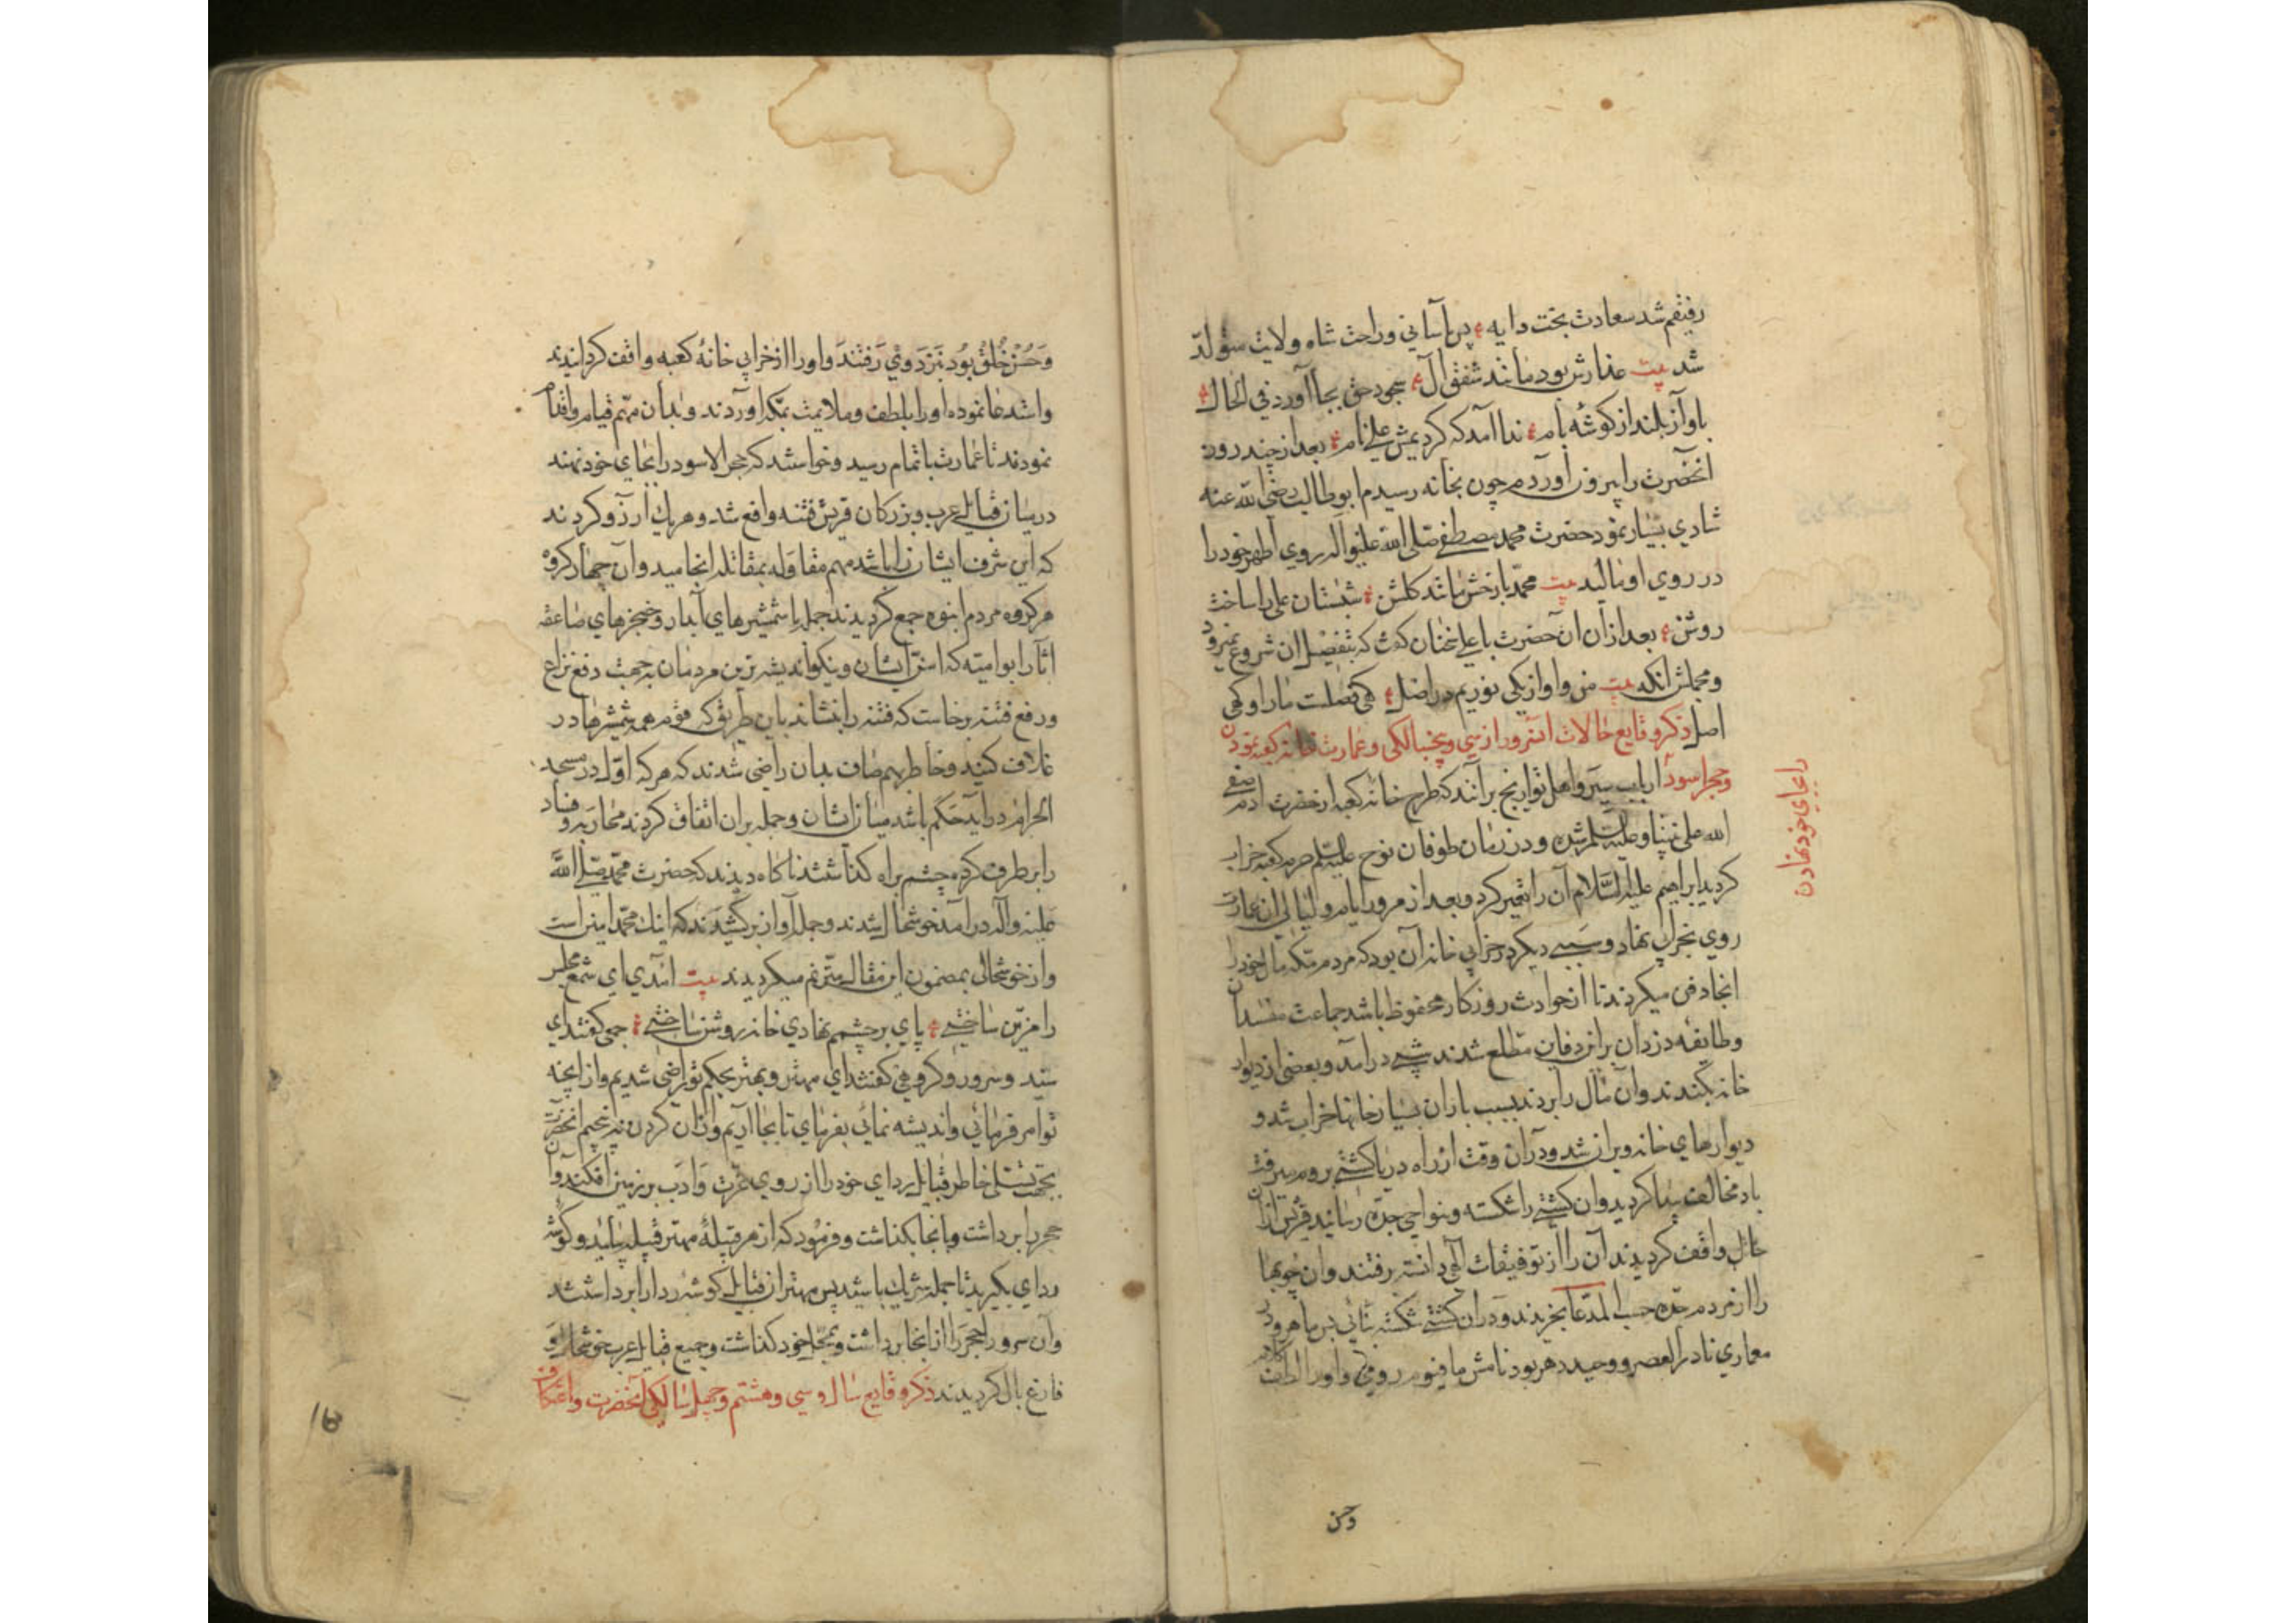 رفیقم شد سعادت بخت دایه پس باسانی وراحت شاه ولایت متولد
شد بیت عذارش بود مانند شفق آل سجود حق بجا آورد في الحال
باواز بلند از کوشه بام ندا آمد که کردیمش علي نام بعد از چند روز
انحضرت را بیرون آوردم چون بخانه رسیدم ابوطالب رضي الله عنه
شادي بسیار نمود حضرت محمد مصطفی صلی الله علیه واله روي اطهر خود را
در روي او مالید بیت محمد با رخش مانند کلشن شبستان علی را ساخت
روشن بعد از آن آن حضرت با علي سخنان کفت که بتفصیل ان شروع نمیرود
ومجملش انکه بیت من واو از یکی نوریم در اصل کی فصلت ما را او کی
اصل ذکر وقایع حالات انسرور از سي وپنجسالکي وعمارت خانه کعبه نمودن
وحجر اسود ارباب سیر واهل تواریخ برانند که طرح خانه کعبه از حضرت ادم صفي
را بجاي خود نهادن
الله علی نبینا وعلیه السلم شده ودر زمان طوفان نوح علیه السلم حرم کعبه خراب
کردید ابراهیم علیه السلام آن را تعمیر کرد وبعد از مرور ایام ولیالي ان عمارت
روي بخرابي نهاد وسببي دیکر در خرابي خانه آن بود که مردم مکه مال خود را
انجا دفن میکردند تا از حوادث روزکار محفوظ باشد جماعت مفسدان
وطائفه دزدان بران دفاین مطلع شدند شبي درامد وبعضي از دیوار
خانه بکندند وآن مال را بردند بسبب باران بسیار خانها خراب شد و
دیوارهاي خانه ویران شد ودرآن وقت از راه دریا کشتي بروم میرفت
باد مخالف پیدا کردید وان کشتي را شکسته وبنواحي جده رسانید قریش از آن
حال واقف کردیدند آن را از توفیقات الهي دانسته رفتند وان چوبها
را از مردم جده حسب المدعا بخریدند ودران کشتي شکسته بنائي بس ماهر ودر
معماري نادر العصر ووحید دهر بود نامش ماقوم رومي واورا الطاف کلام
وحسن
وحسن خلق بود نزد وي رفتند واورا از خرابي خانه کعبه واقف کردانیدند
واستدعا نموده اورا بلطف وملایمت بمکه اوردند وبدان مهم قیام واقدام
نمودند تا عمارت باتمام رسید وخواستند که حجر الاسود را بجاي خود نهند
درمیان قبائل عرب وبزرکان قریش فتنه واقع شد وهر یك آرزو کردند
که این شرف ایشان را باشد مهم مقاوله بمقاتله انجامید وآن چهار کروه
هر کروه مردم انبوه جمع کردیدند جمله با شمشیرهاي آبدار وخنجرهاي صاعقه
اثار ابوامیه که اسن ایشان ونیکواندیشه ترین مردمان بجهت دفع نزاع
ورفع فتنه برخاست که فتنه را بنشاند باین طریق که قوم همه شمشیرها در
غلاف کنید وخاطر بهم صاف بدان راضي شدند که هر که اول در مسجد
الحرام درآید حکم باشد میان ایشان وجمله بران اتفاق کردند محاربه وفساد
را بر طرف کرده چشم براه کذاشتند ناکاه دیدند که حضرت محمد صلي الله
علیه وآله درآمد خوشحال شدند وجمله آواز برکشیدند که اینك محمد امین است
واز خوشحالي بمضمون این مقال مترنم میکردیدند بیت امدي اي شمع مجلس
را مزین ساختي پاي بر چشمم نهادي خانه روشن ساختي جمعی کفتند اي
سید وسرور وکروهي کفتند اي مهتر وبهتر بحکم تو راضي شدیم واز آنچه
تو امر فرمائي واندیشه نمائي بفرماي تا بجا آریم وازان کردن نه پیچیم انحضرت
بجهت تسلي خاطر قبایل رداي خود را از روي عزت وادب بر زمین افکند وآن
حجر را برداشت وبانجا بکذاشت وفرمود که از هر قبیلۀ مهتر قبیله بیاید وکوشه
رداي بکیرید تا جمله شریك باشید پس مهتران قبایل کوشه ردا را برداشتند
وآن سرور حجر را از انجا برداشت وبمحل خود کذاشت وجمیع قبایل عرب خوشحال و
فارغ بال کردیدند ذکر وقایع سال وسي وهشتم وچهل سالکي آنحضرت واعتکاف
16